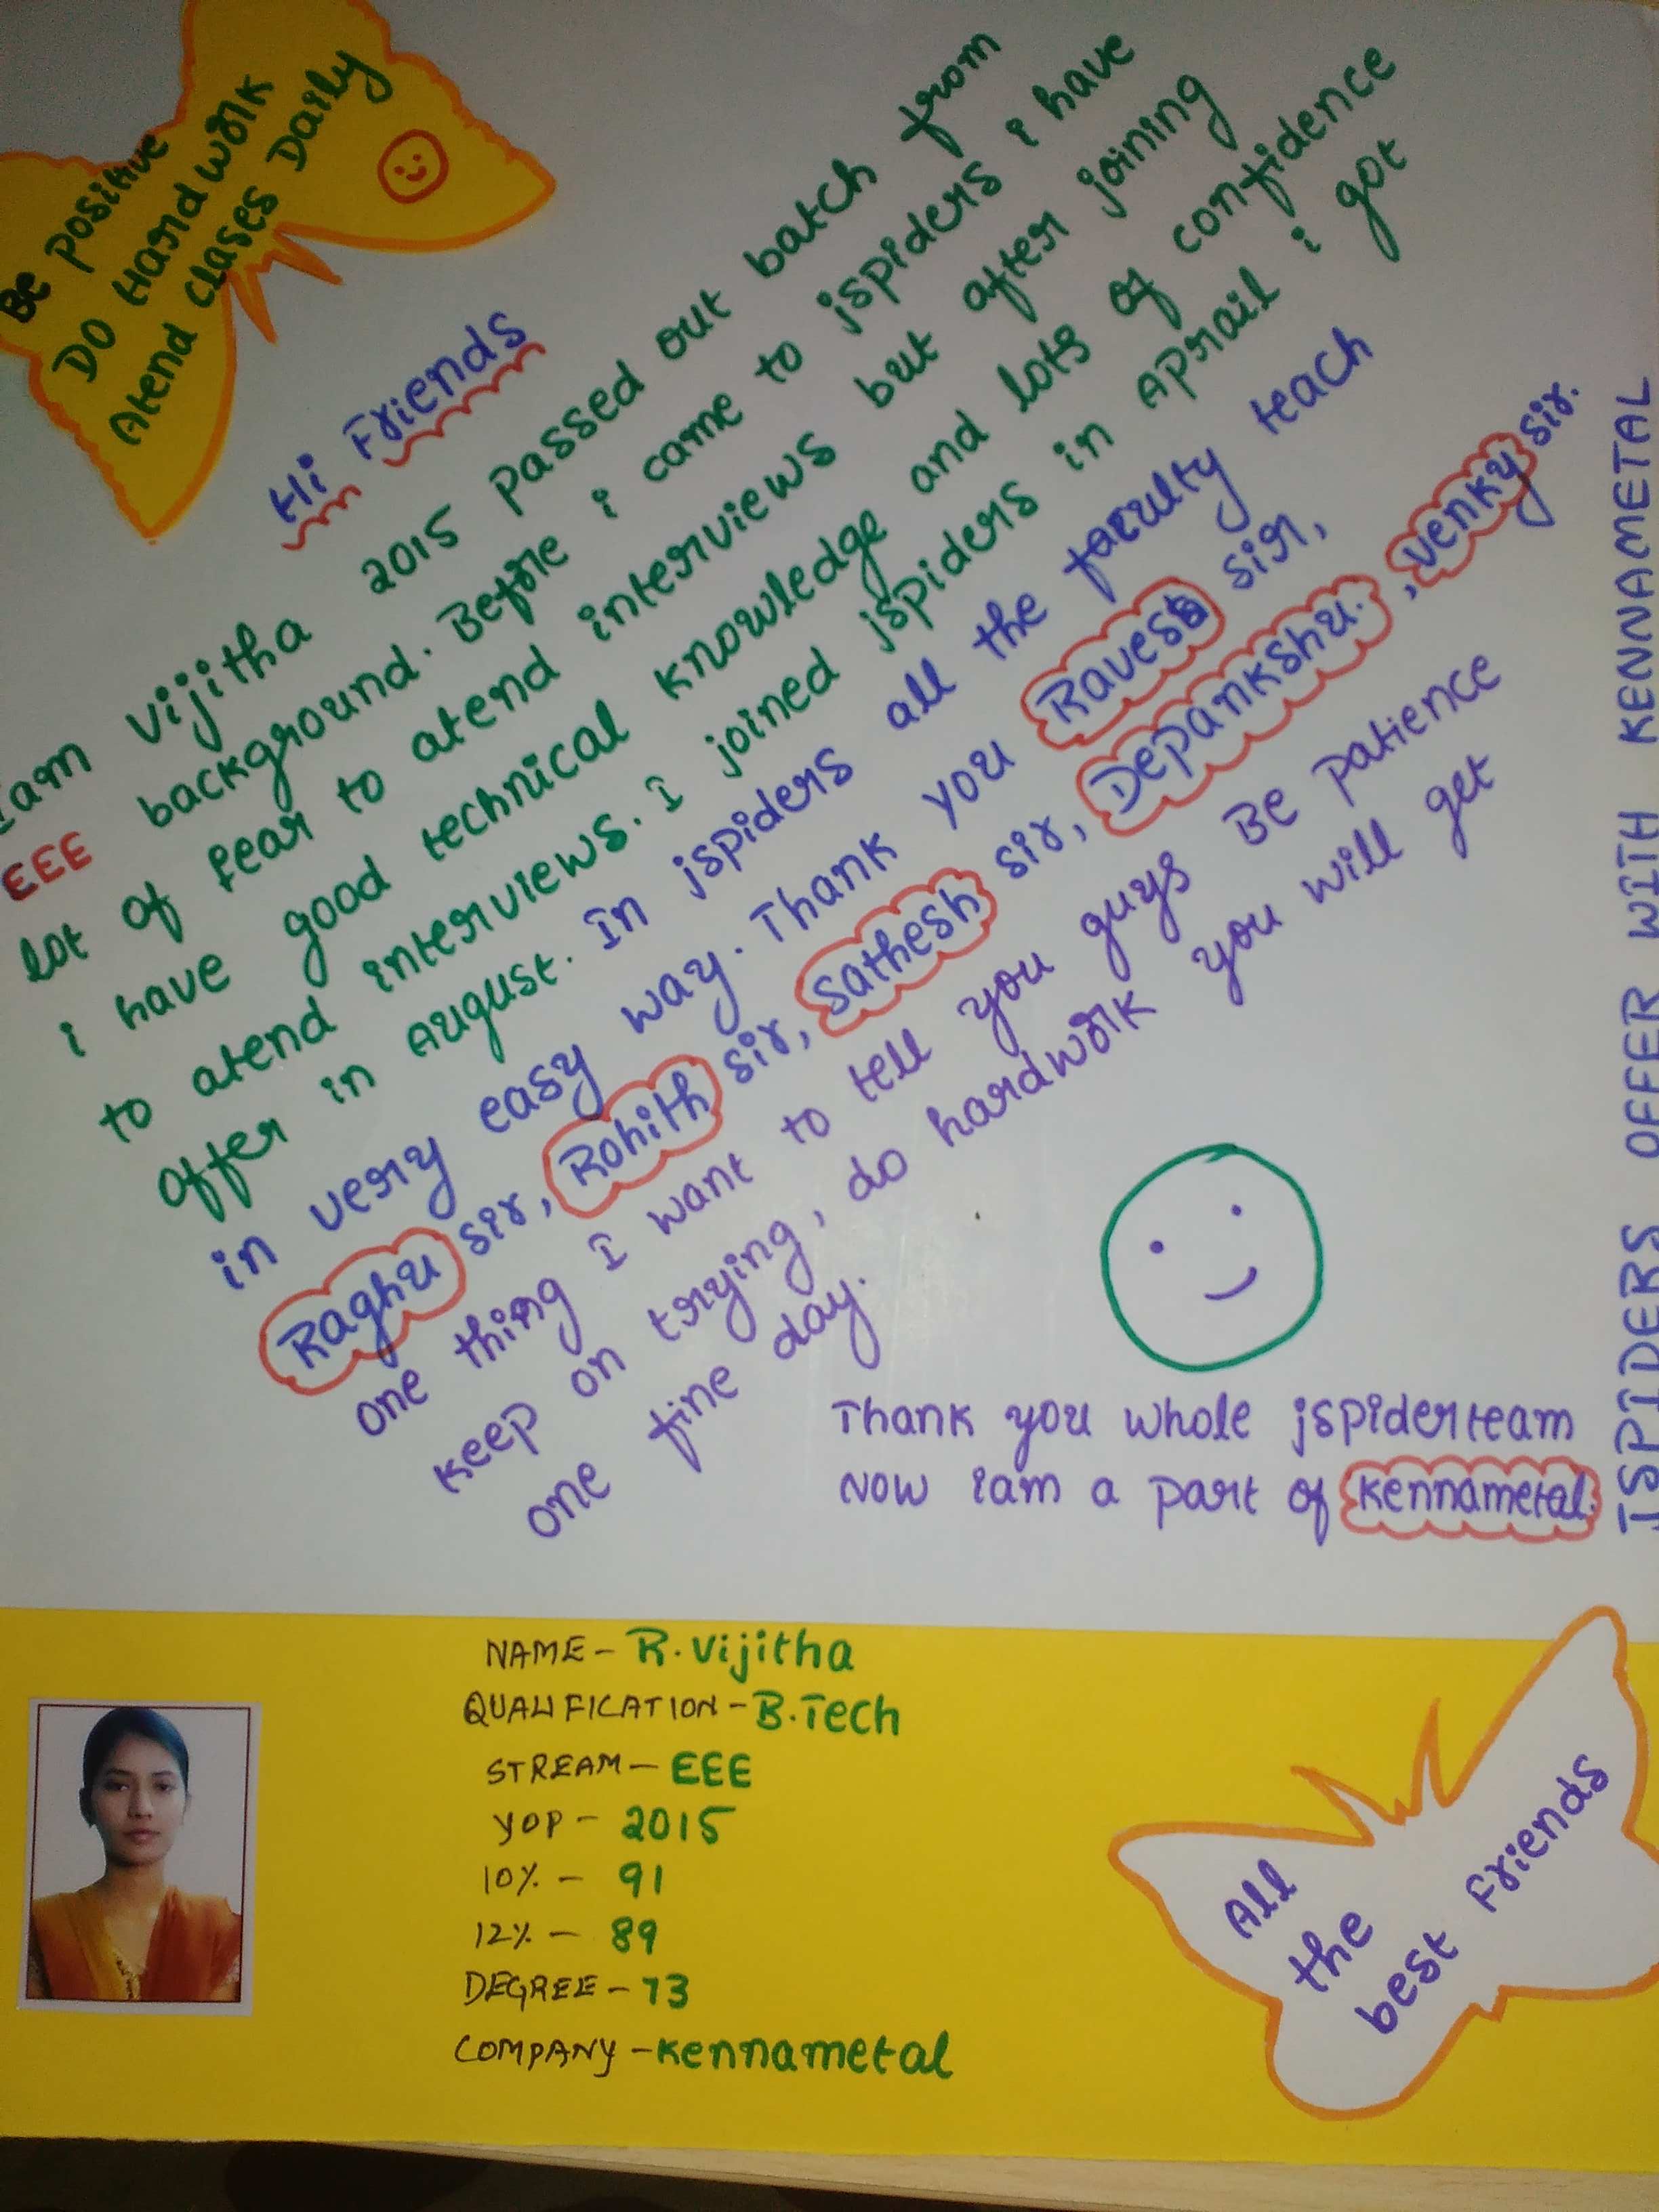 Be Positive
DO Hard work
Atend Clases Daily
Hi Friends
Iam Vijitha 2015 passed out batch from
EEE background. Before i came to jspiders i have
lot of fear to atend interviews but after joining
i have good technical knowledge and lots of confidence
to atend interviews. I joined jspiders in Aprail i got
offer in August. In jspiders all the faculty teach
in very easy way. Thank you Ravesh sir,
Raghu sir, Rohith sir, Sathesh sir, Depankshu. , Venky sir.
one thing I want to tell you guys Be patience
keep on trying, do hardwork you will get
one fine day.
Thank you whole jspider team
Now iam a part of Kennametal.
JSPIDERS OFFER WITH KENNAMETAL
NAME - R. Vijitha
QUALIFICATION - B.Tech
STREAM - EEE
YOP - 2015
10% - 91
12% - 89
DEGREE - 73
COMPANY - Kennametal
All
the
best Friends